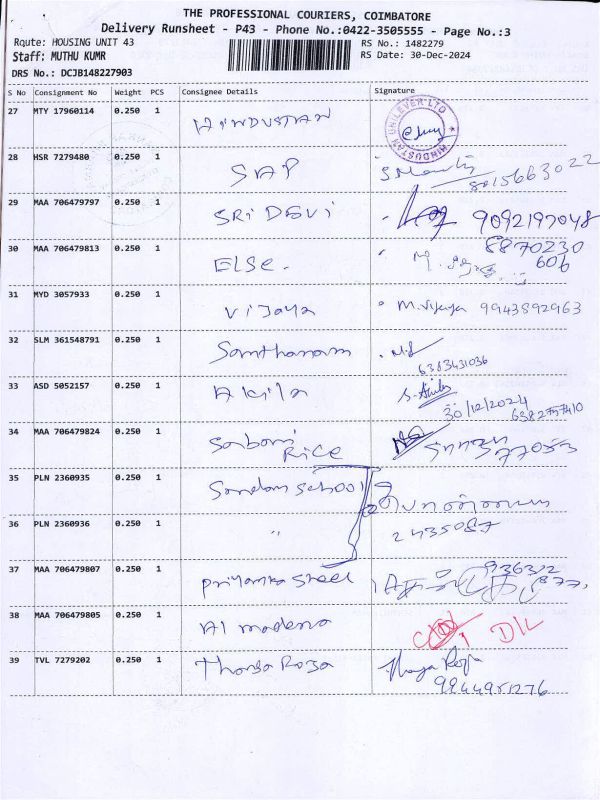 THE PROFESSIONAL COURIERS, COIMBATORE
Delivery Runsheet - P43 - Phone No.:0422-3505555 - Page No.:3
Route: HOUSING UNIT 43
RS No.: 1482279
Staff: MUTHU KUMR
RS Date: 30-Dec-2024
DRS No.: DCJB148227903
S No Consignment No Weight PCS Consignee Details Signature
27 MTY 17960114 0.250 1 HINDUSTAN HINDUSTAN UNILEVER LTD
28 HSR 7279480 0.250 1 SAP 8015663022
29 MAA 706479797 0.250 1 SRI DEVI 9092197048
30 MAA 706479813 0.250 1 ELSE. 8870230
606
31 MYD 3057933 0.250 1 Vijaya M.Vijaya 9943892963
32 SLM 361548791 0.250 1 Santhanam 6383431036
33 ASD 5052157 0.250 1 Akila S. Akila
30/12/2024
34 MAA 706479824 0.250 1 RICE
35 PLN 2360935 0.250 1 School
36 PLN 2360936 0.250 1 " 2435087
37 MAA 706479807 0.250 1 Priyanka Steel
38 MAA 706479805 0.250 1 Al madena D/L
39 TVL 7279202 0.250 1 Thanga Roja